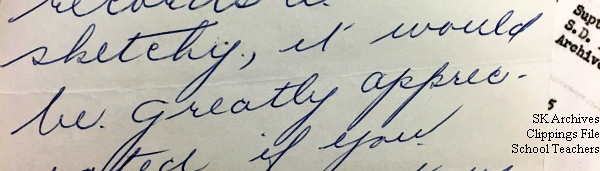 records
sketchy, it would
be greatly apprec-
iated if you
Supt
S.D.
Archiv
5
SK Archives
Clippings File
School Teachers